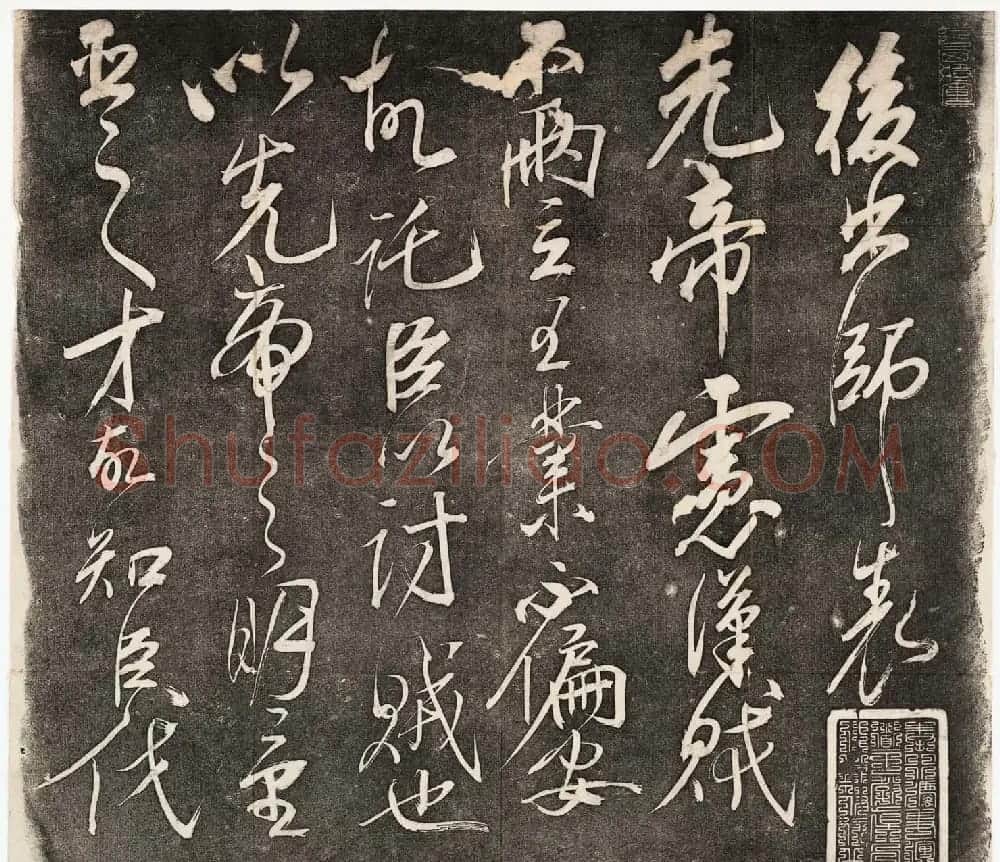 後出師表
先帝慮漢賊
不兩立王業不偏安
故託臣以討賊也
以先帝之明量
臣之才故知臣伐
Shufaziliao.COM